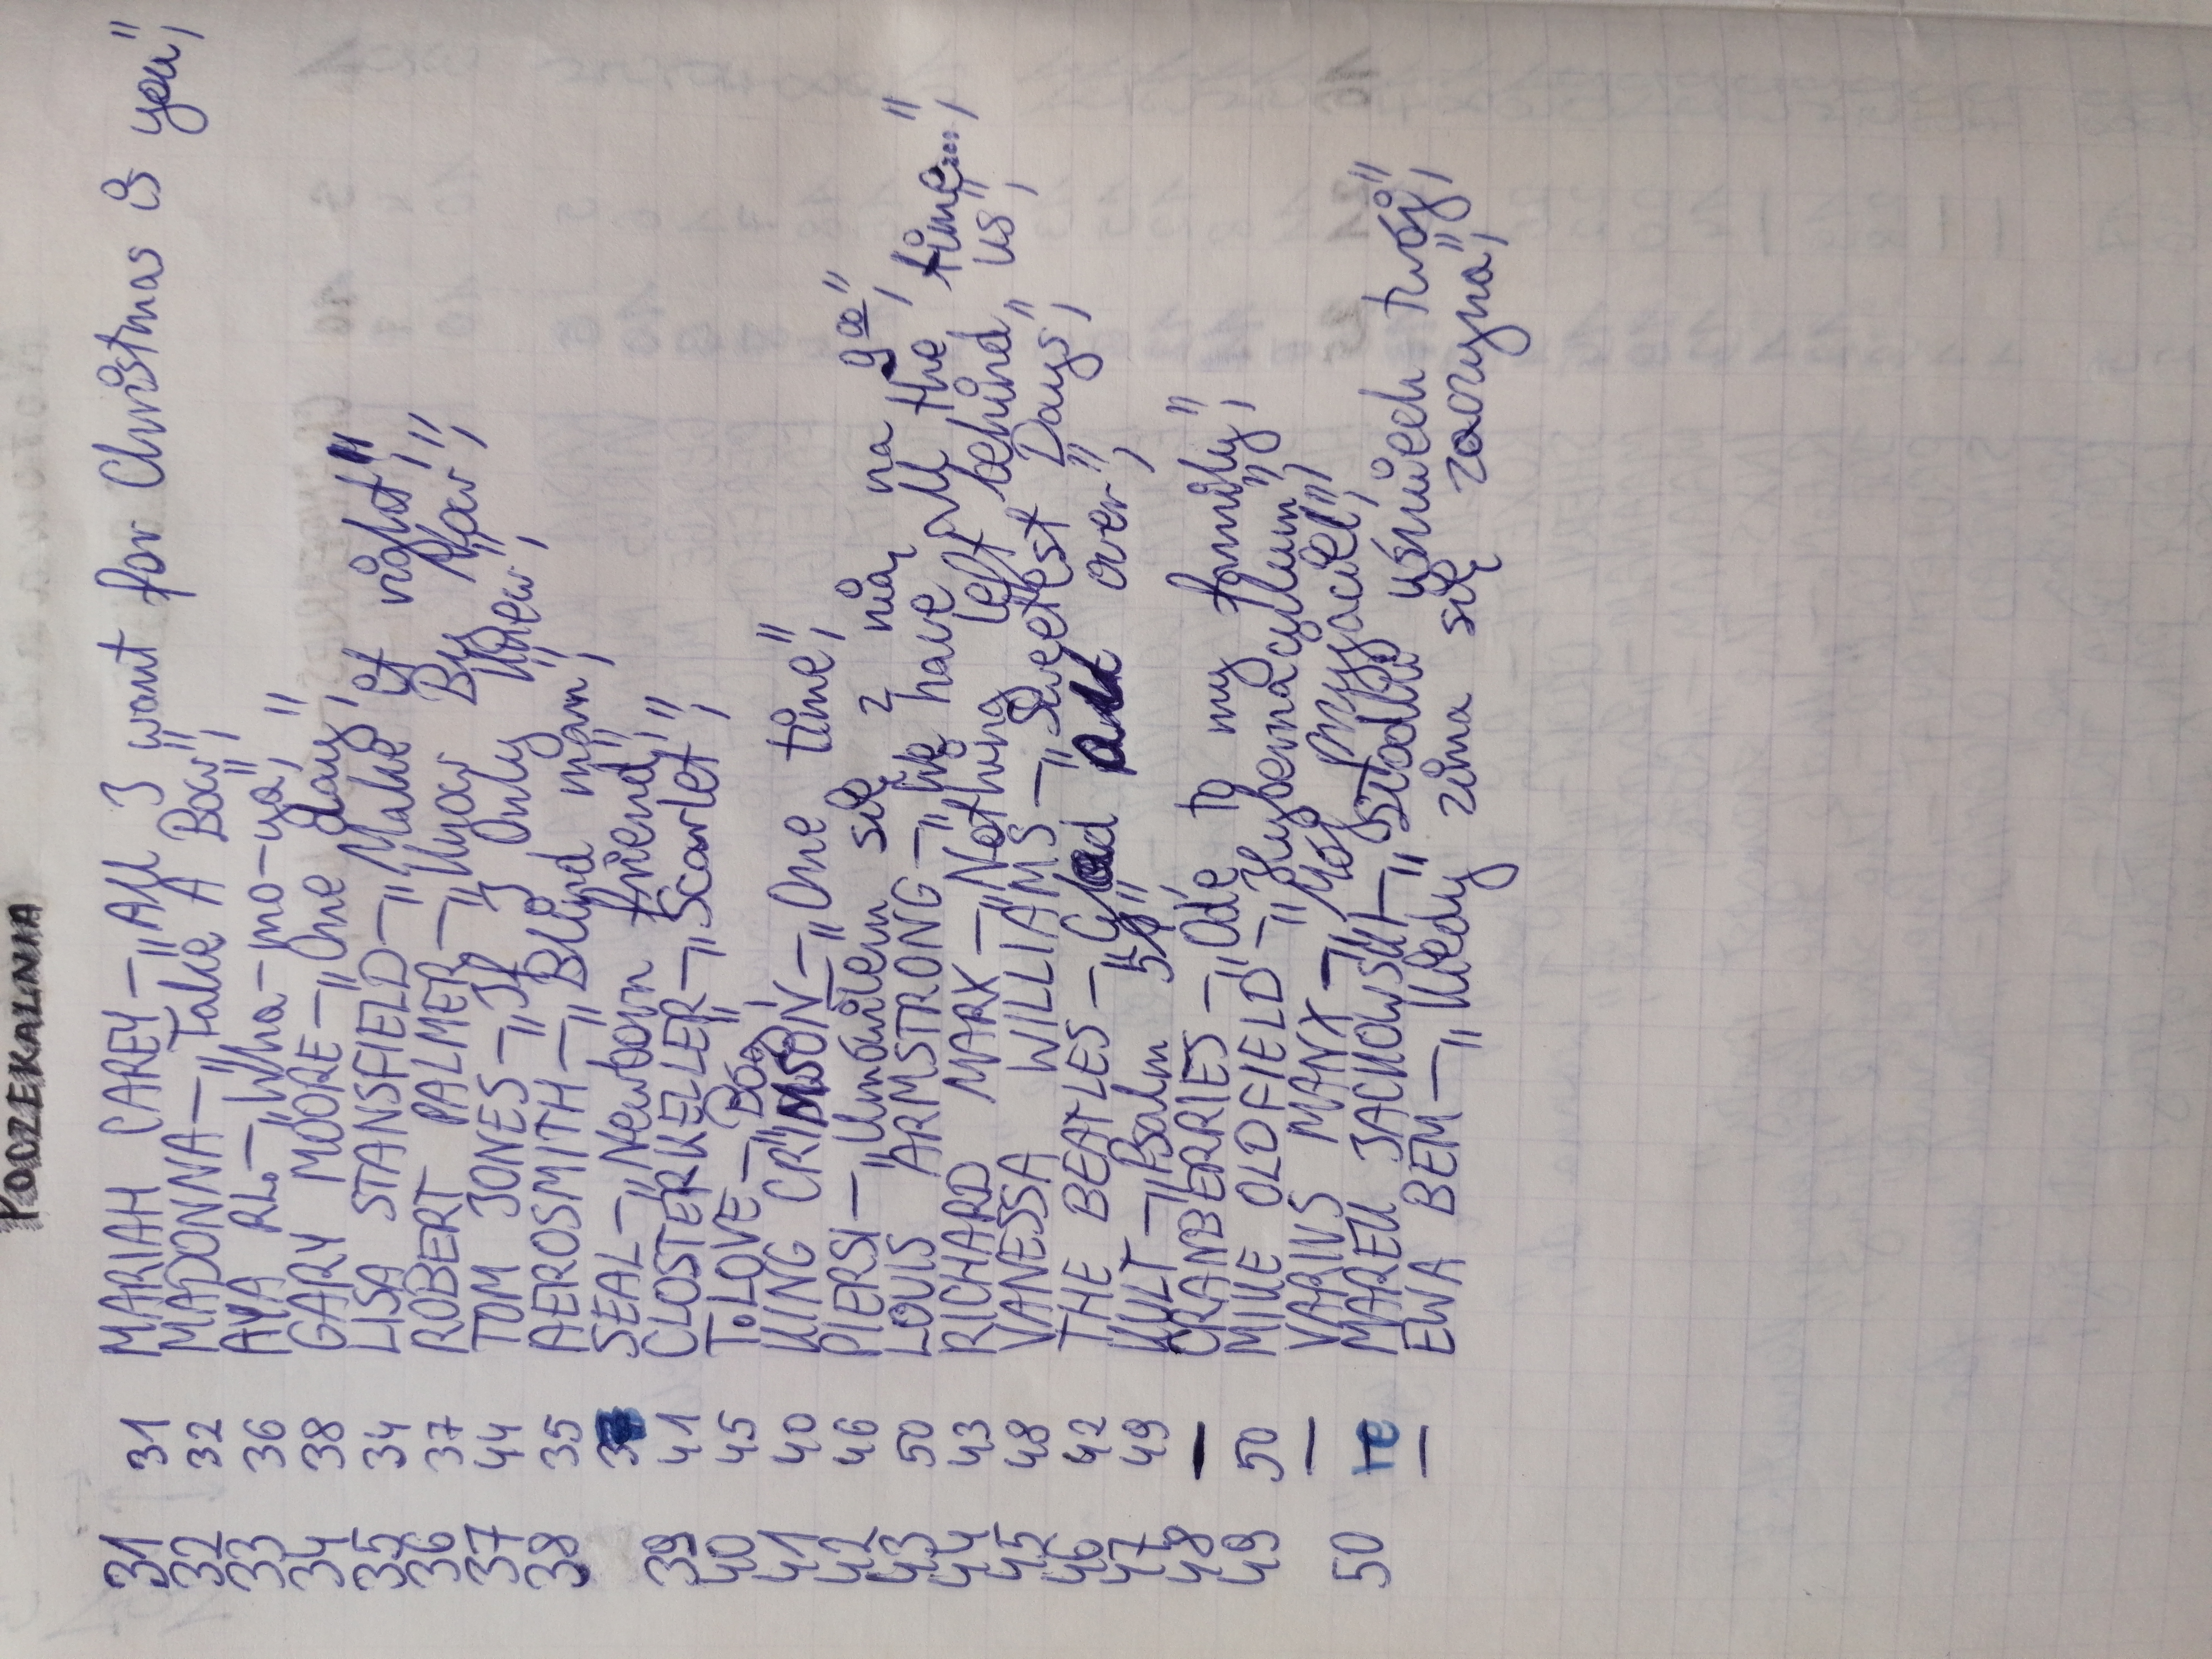 POCZEKALNIA
31 31 MARIAH CAREY – „All I want for Christmas is you",
32 32 MADONNA – „Take A Bow",
33 36 AYA RL – „Wha-mo-ya",
34 38 GARY MOORE – „One day",
35 34 LISA STANSFIELD – „Make it right",
36 37 ROBERT PALMER – „Know By Now",
37 44 TOM JONES – „If I Only Knew",
38 35 AEROSMITH – „Blind man",
SEAL – „Newborn friend",
39 41 CLOSTERKELLER – „Scarlet",
40 45 T.LOVE – „Bóg",
41 40 KING CRIMSON – „One time",
42 46 PIERSI – „Umówiłem się z nią na 9 00",
43 50 LOUIS ARMSTRONG – „We have All the time...",
44 43 RICHARD MARX – „Nothing left behind us",
45 48 VANESSA WILLIAMS – „Sweetest Days",
46 42 THE BEATLES – „over",
47 49 KULT – „Psalm 5",
48 – CRANBERRIES – „Ode to my family",
49 50 MIKE OLDFIELD „Hybernaculum",
– VARIUS MANX – „Mój przyjaciel",
50 re MAREK JACKOWSKI – „Słodki uśmiech twój",
– EWA BEM – „Kiedy zima się zaczyna",